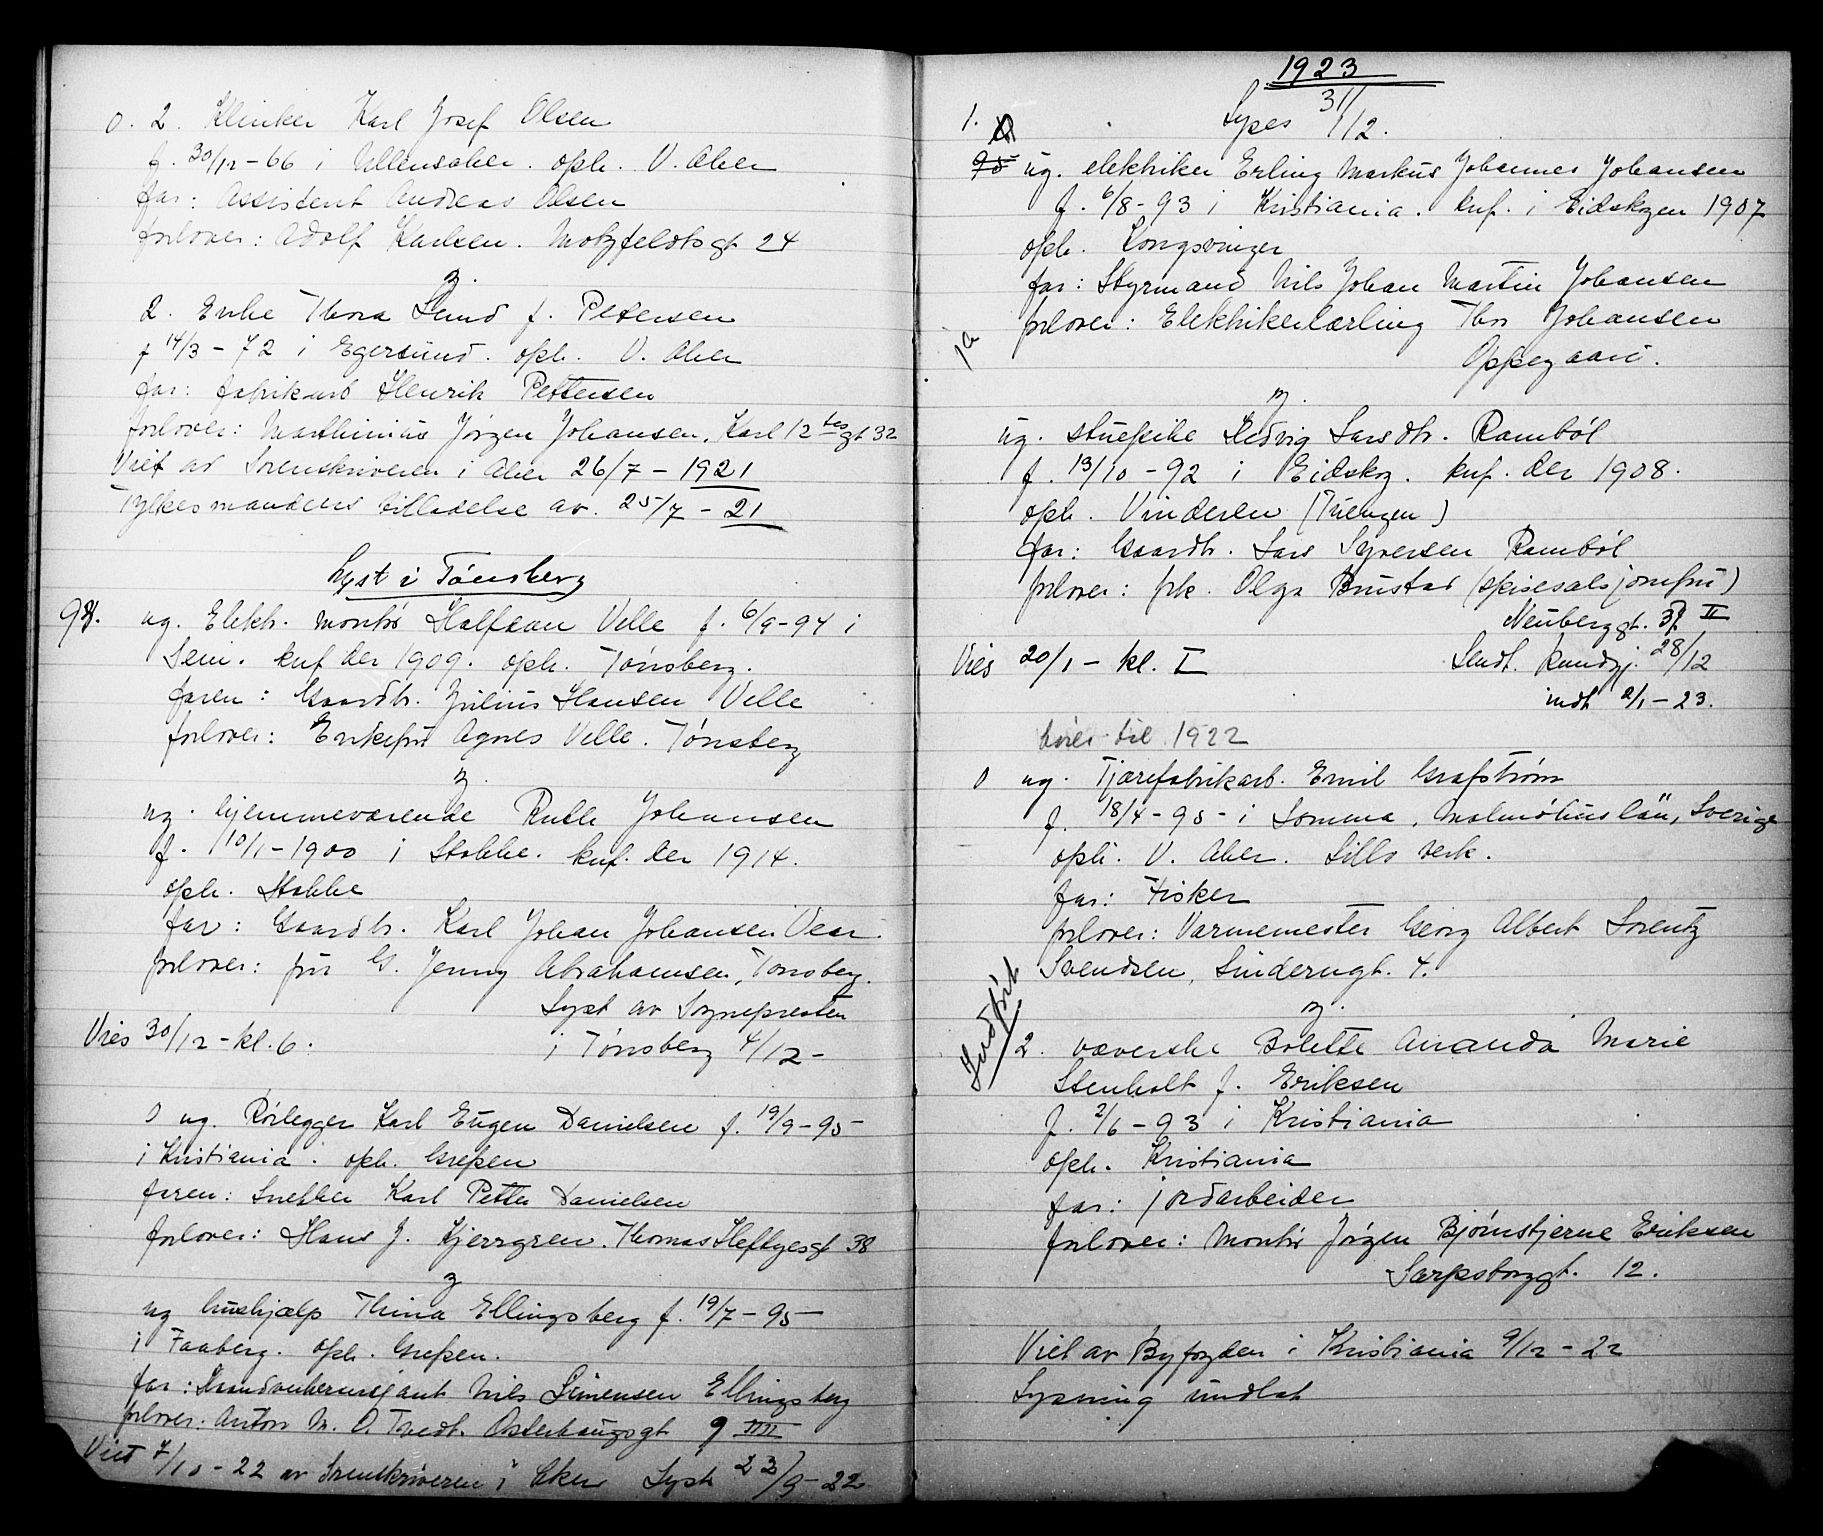 0. 2. Klinker Karl Josef Olsen
f. 30/12-66 i Ullensaker. oph. V. Aker
far: Assistent Andreas Olsen
forlover: Adolf Karlsen. Motzfeldtsgt 24
og
2. Enke Thora Lund f. Petersen
f 14/3-72 i Egersund. oph. V. Aker
far: fabrikarb Henrik Pettersen
forlover: Marthinius Jörgen Johansen, Karl 12tes gt 32
Viet av Sorenskriveren i Aker 26/7-1921
Fylkesmandens tilladelse av. 25/7-21
Lyst i Tönsberg
94. ug. Elektr. montör Halfdan Velle f. 6/9-94 i
Sem. knf der 1909. oph. Tönsberg.
faren: Gaardbr. Julius Hansen Velle
forlover: Enkefru Agnes Velle. Tönsberg
og
ug. hjemmeværende Ruth Johansen
f. 10/1-1900 i Stokke. knf. der 1914.
oph. Stokke
far: Gaardbr. Karl Johan Johansen Vear.
forlover: fru G. Jenny Abrahamsen, Tönsberg.
Lyst av Sognepresten
Vies 30/12-kl.6. i Tönsberg 4/12-
0 ug. Rörlegger Karl Eugen Danielsen f. 19/9-95
i Kristiania. oph. Grefsen
faren: Snekker Karl Petter Danielsen
forlover: Hans J. Kjerrgren. Thomas Heftyesgt 38
og
ug hushjælp Thina Ellingsberg f. 19/7-95
i Faaberg. oph. Grefsen.
far: Nils Simensen Ellingsberg
forlover: Anton M. O. Tvedt. Osterhausgt 9 IIII
Viet 7/10-22 av Sorenskriveren i Aker Lyst 23/9-22
1923
1. Lyses 31/12.
95 ug. elektriker Erling Markus Johannes Johansen
f. 6/8-93 i Kristiania. knf. i Eidskogen 1907
oph. Kongsvinger
far: Styrmand Nils Johan Martin Johansen
forlover: Elektrikerlærling Thor Johansen
ja
Oppegaard.
og.
ug. stuepike Hedvig Larsdtr. Ramböl
f. 13/10-92 i Eidskog. knf. der 1908.
oph. Vinderen (Tuengen)
far: Gaardbr. Lars Syversen Ramböl
forlover: frk. Olga Brustad (spisesalsjomfru)
Neuberggt. 37 II
Vies 20/1-kl. I Sendt kundgj. 28/12
indt 2/1-23.
hörer til 1922
0 ug. Tjærefabrikarb. Emil Grafström
f. 18/4-95- i Lomma, Malmöhus län, Sverige
oph. V. Aker. Lillo verk.
far: Fisker
forlover: Varmemester Georg Albert Lorentz
Svendsen, Sinderngt. 4.
og.
Indfört
2. væverske Bolette Ananda Marie
Stenholt f. Eriksen
f. 2/6-93 i Kristiania
oph. Kristiania
far: jordarbeider
forlover: Montör Jörgen Bjørnstjerne Eriksen
Sarpsborggt. 12.
Viet av Byfogden i Kristiania 9/12-22
Lysning undlat